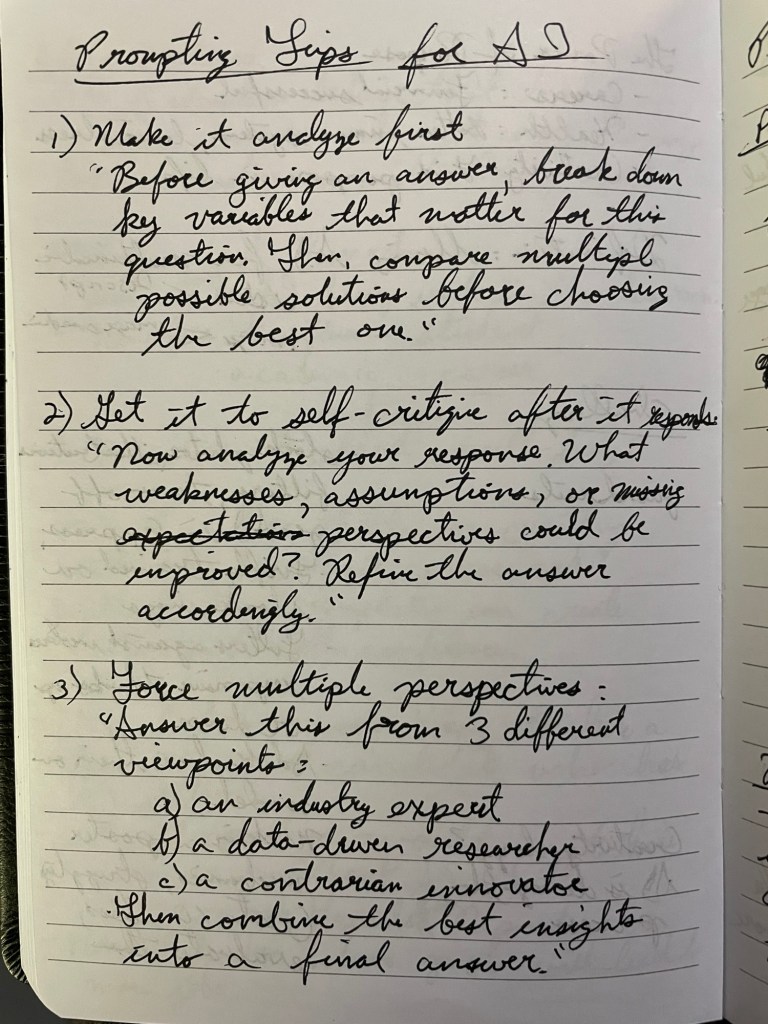 Prompting Tips for AI
1) Make it analyze first
"Before giving an answer, break down
key variables that matter for this
question. Then, compare multipl
possible solutions before choosing
the best one."
2) Get it to self-critique after it responds.
"Now analyze your response. What
weaknesses, assumptions, or missing
expectations perspectives could be
improved? Refine the answer
accordingly."
3) Force multiple perspectives:
"Answer this from 3 different
viewpoints:
a) an industry expert
b) a data-driven researcher
c) a contrarian innovator
Then combine the best insights
into a final answer."